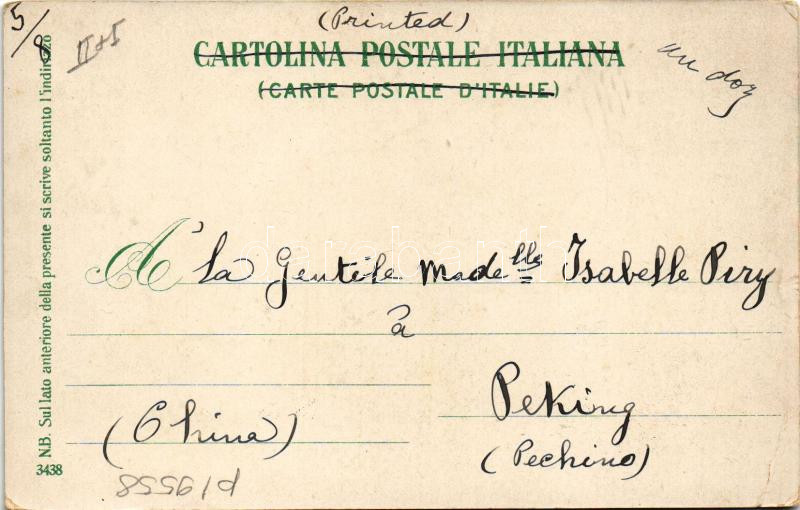 5/8
II+I
(Printed)
CARTOLINA POSTALE ITALIANA
(CARTE POSTALE D'ITALIE)
N.B. Sul lato anteriore della presente si scrive soltanto l'indirizzo
A' la Gentile Madelle Isabelle Piry
à
Peking
(China)
(Pechino)
3438
p19558
darabanth